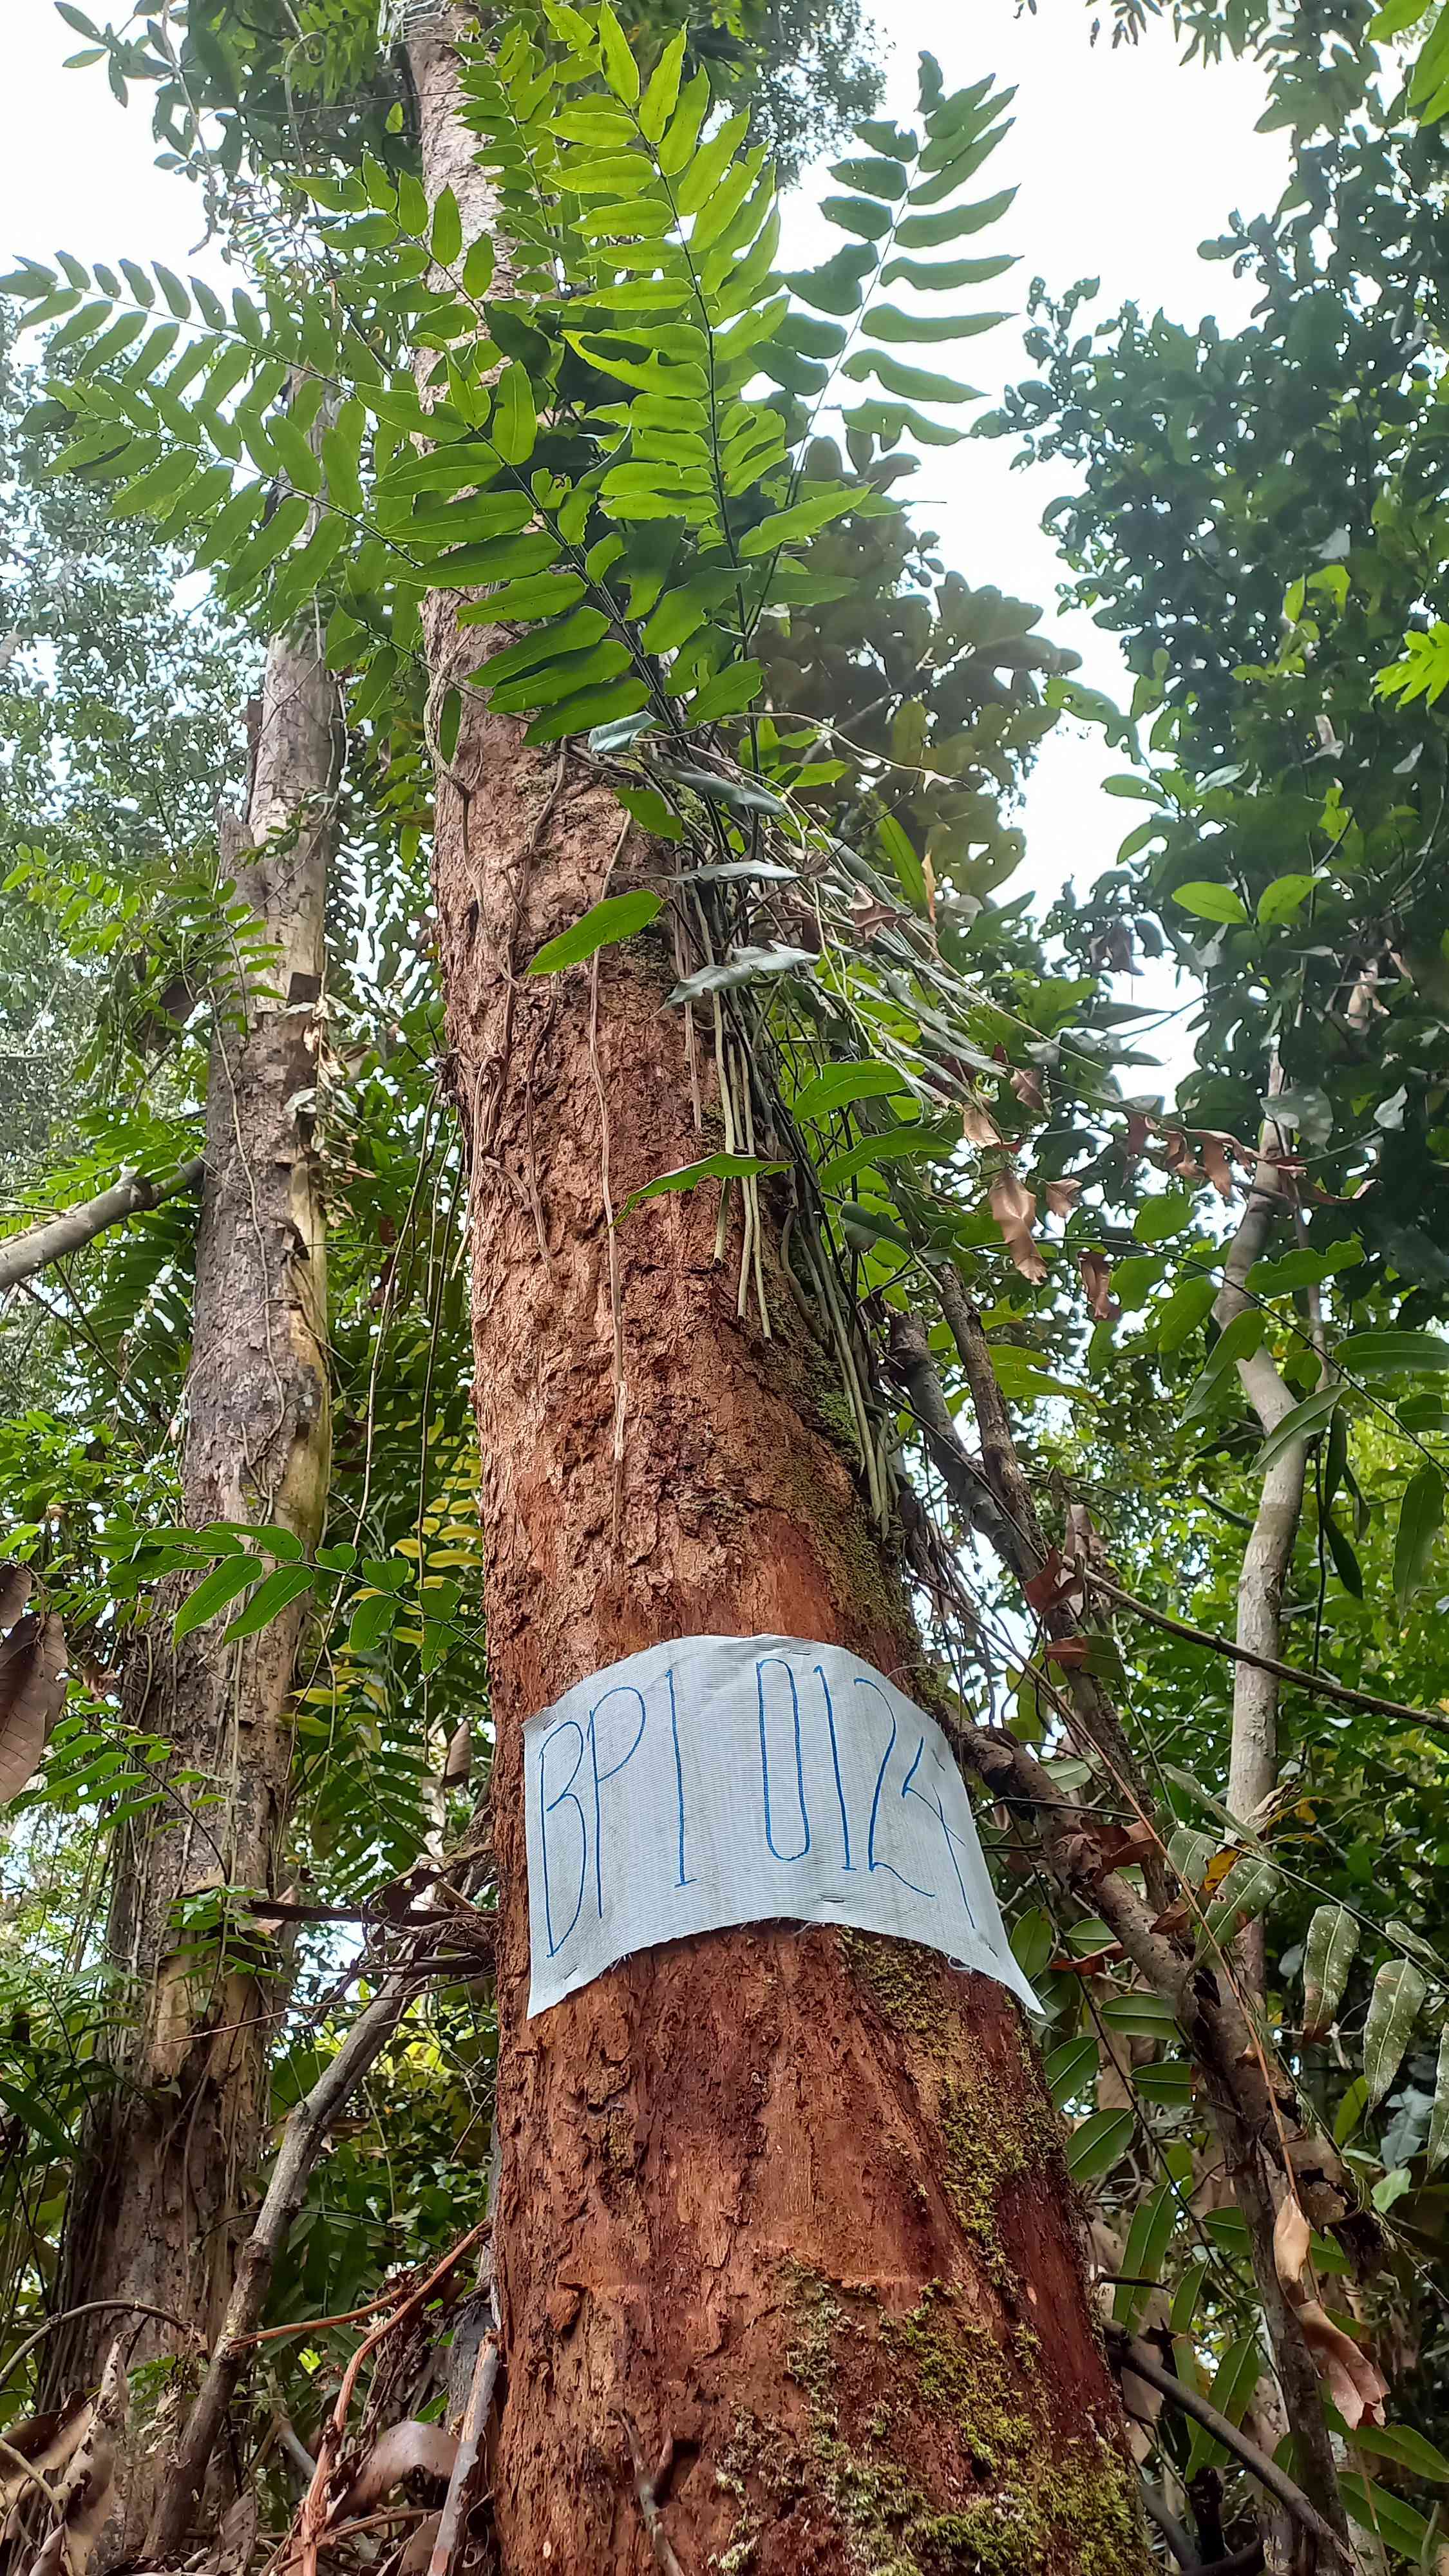 BPI 0124